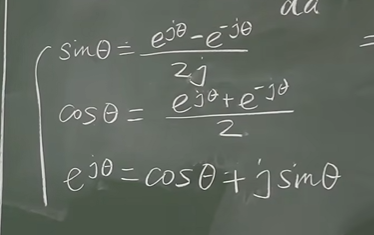 sinθ = (e^{jθ} - e^{-jθ}) / 2j
cosθ = (e^{jθ} + e^{-jθ}) / 2
e^{jθ} = cosθ + j sinθ